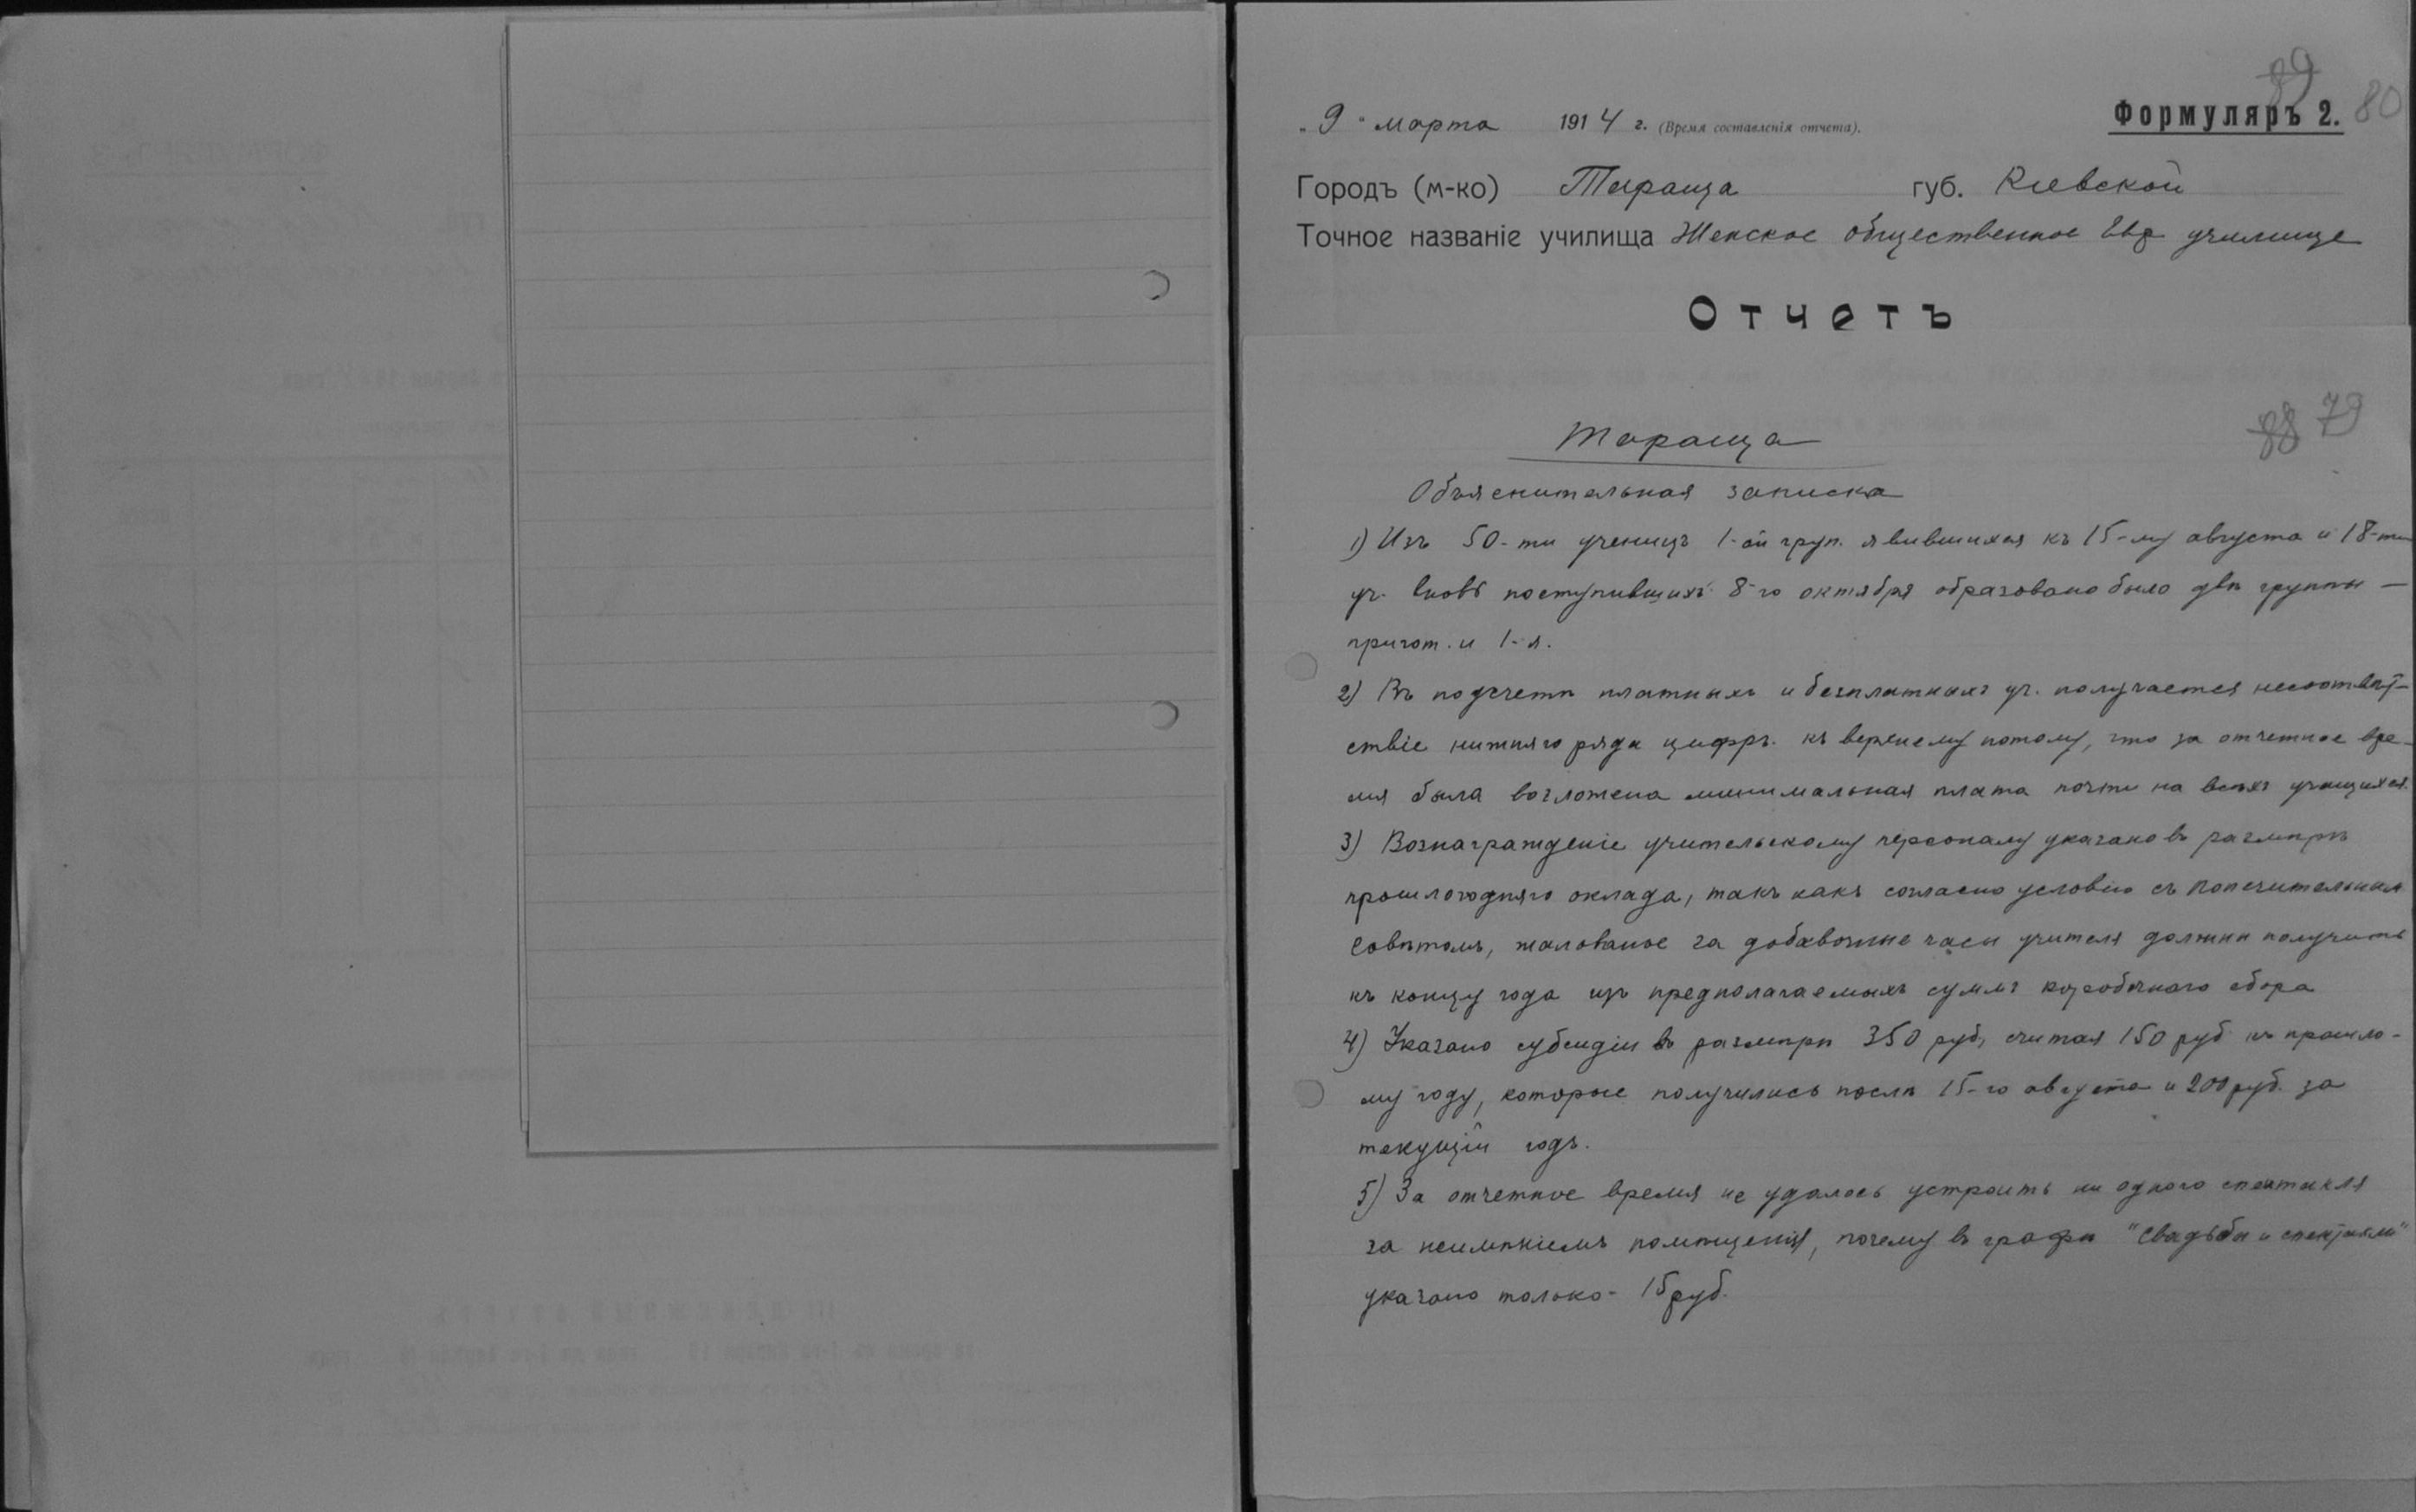 89 80
„ 9 “ марта 1914 г. (Время составленія отчета). Формуляръ 2.
Городъ (м-ко) Тараща губ. Кіевской
Точное названіе училища Женское общественное Евр училище
Отчетъ
88 79
Тараща
Объяснительная записка
1) Изъ 50-ти ученицъ 1-ой груп. явившихся къ 15-му августа и 18-ти
уч. вновь поступившихъ 8-го октября образовано было двѣ группы —
пригот. и 1-я.
2) Въ подсчетѣ платныхъ и безплатныхъ уч. получается несоотвѣт-
ствіе нижняго ряда цифръ. къ верхнему потому, что за отчетное вре-
мя была возложена минимальная плата почти на всѣхъ учащихся.
3) Вознагражденіе учительскому персоналу указано въ размѣрѣ
прошлогодняго оклада, такъ какъ согласно условію съ Попечительнымъ
Совѣтомъ, жалованое за добавочные часы учителя должны получить
къ концу года изъ предполагаемыхъ суммъ коробочнаго сбора
4) Указано субсидіи въ размѣрѣ 350 руб, считая 150 руб къ прошло-
му году, которые получились послѣ 15-го августа и 200 руб. за
текущій годъ.
5) За отчетное время не удалось устроить ни одного спектакля
за неимѣніемъ помѣщенія, почему въ графѣ "Свадьбы и спектакли"
указано только - 15 руб.